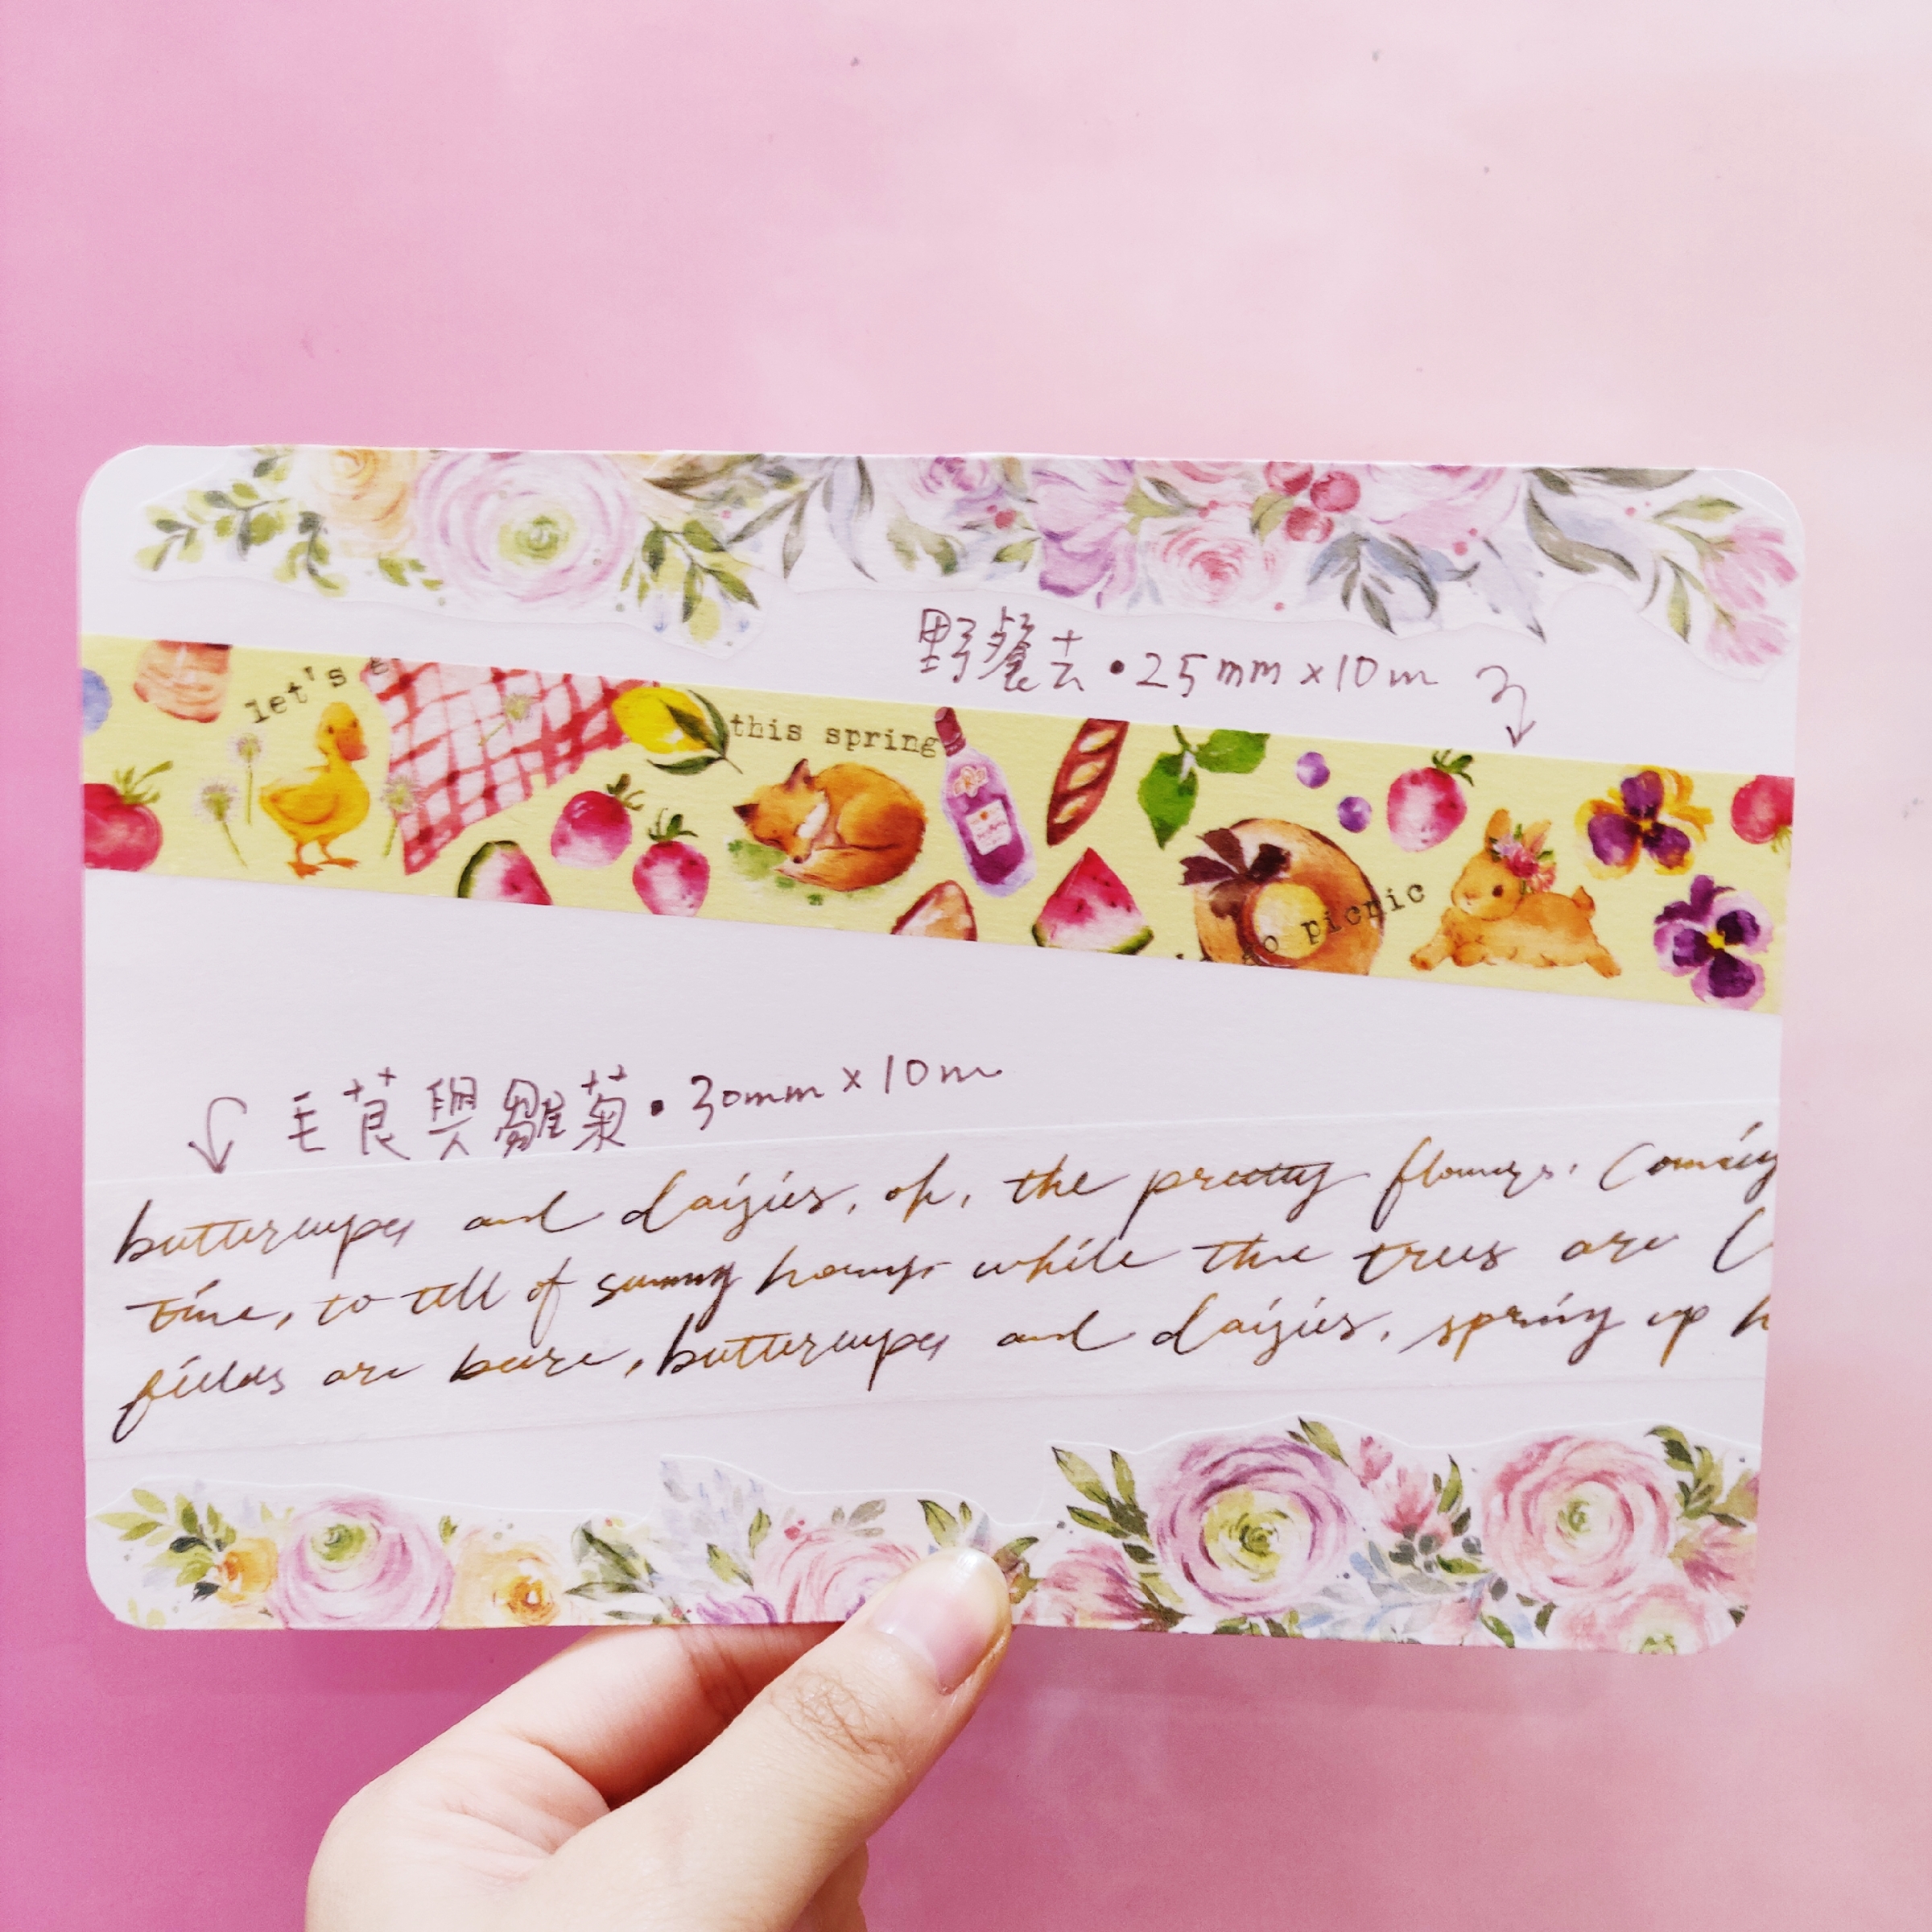 野餐去•25mm×10m
let's
this spring
go picnic
毛茛與雛菊•30mm×10m
buttercups and daisies, oh, the pretty flowers. Coming
time, to tell of sunny hours while the trees are
fields are bare, buttercups and daisies, spring up